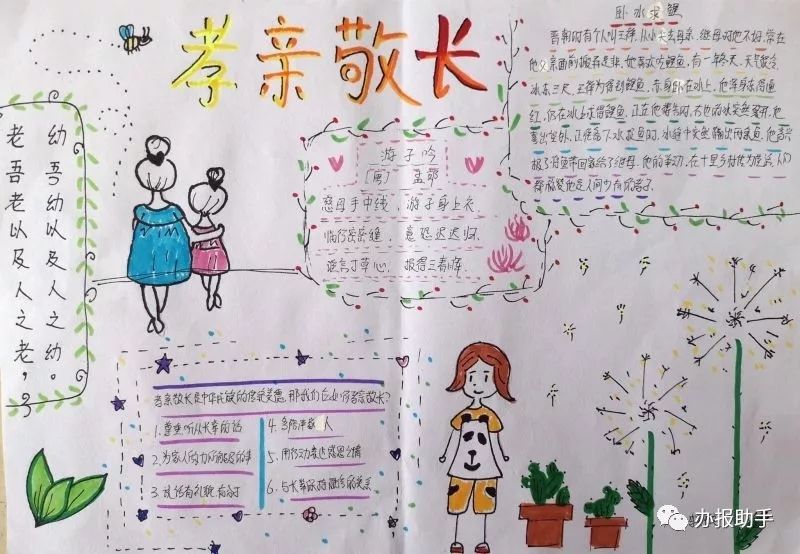 孝亲敬长
老吾老以及人之老，
幼吾幼以及人之幼。
游子吟
孟郊
慈母手中线，游子身上衣，
临行密密缝，意恐迟迟归.
谁言寸草心，报得三春晖.
卧冰求鲤
晋朝时有个人叫王祥，从小失去母亲，继母对他不好，常在
他父亲面前搬弄是非，她喜欢吃鲤鱼，有一年冬天，天气寒冷
冰冻三尺，王祥为得到鲤鱼，赤身卧在冰上，他浑身冻得通
红，仍在冰上求得鲤鱼，正在他祷告时，冰突然裂开，他
喜出望外，正准备下水捉鱼时，冰缝中突然鲤鱼，他
把了回家给了继母，他的举动，在十里乡村传为佳话，人们
都他是人间少有的孝子。
孝亲敬长是中华民族的传统美德，那我们应如何孝亲敬长?
1.尊重听从长辈的话
2.为家人做力所能及的事
3.说话有礼貌
4.多陪伴人
5.用行动表达感恩之情
6.与长辈
办报助手